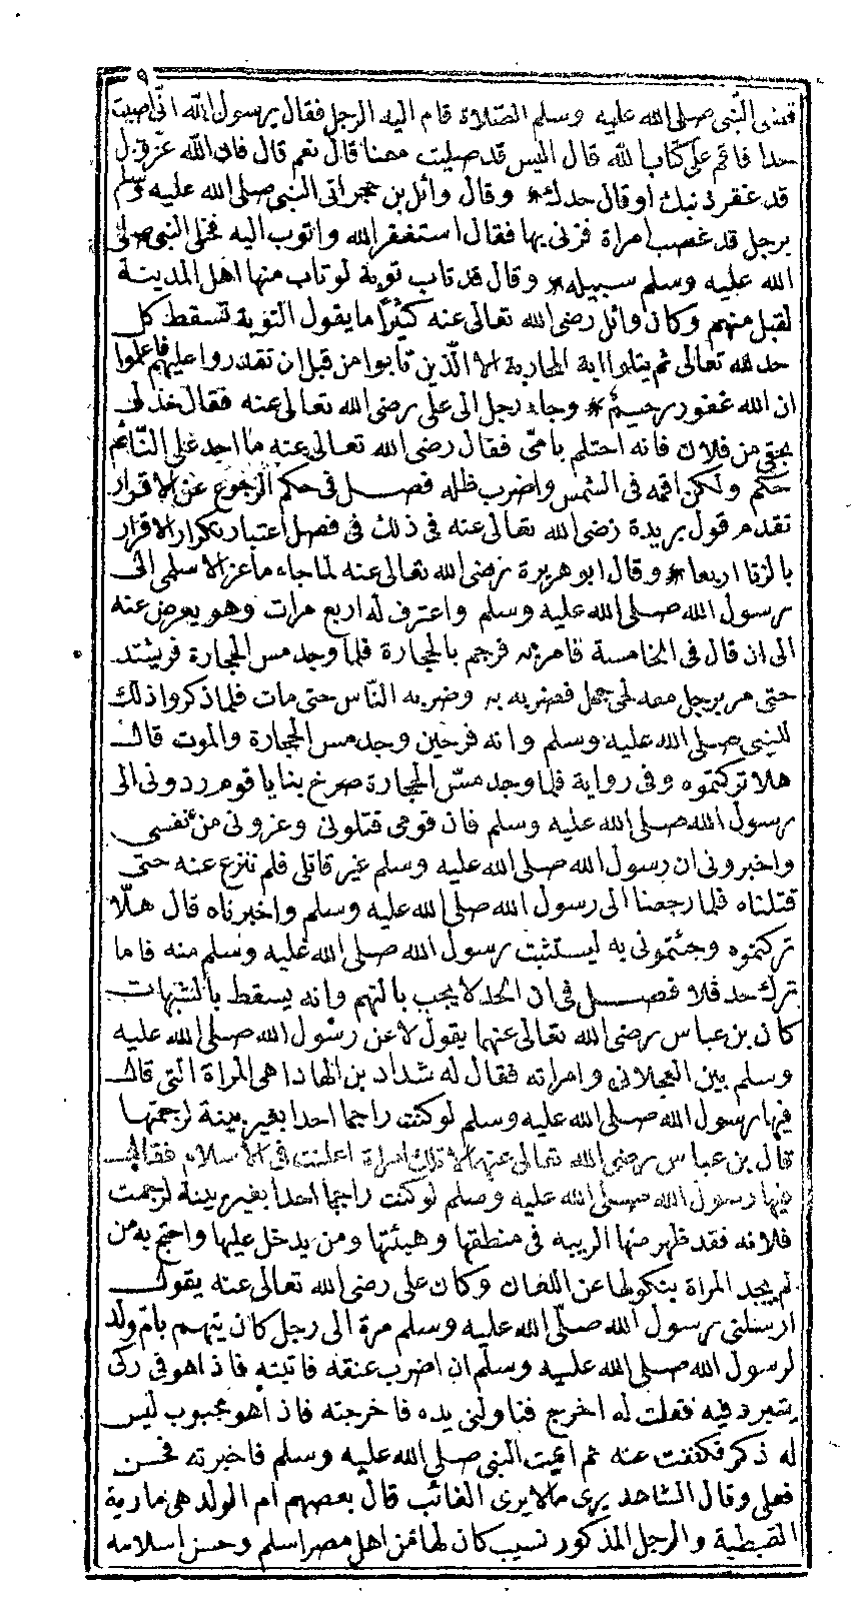 ٩
قضى النبى صلى الله عليه وسلم الصلاة قام اليه الرجل فقال يرسول الله انى اصبت
حدا فاقم على كتاب الله قال اليس قد صليت معنا قال نعم قال فان الله عز وجل
قد غفر ذنبك او قال حدك * وقال وائل بن حجر اتى النبى صلى الله عليه وسلم
برجل قد غصب امراة فزنى بها فقال استغفر الله واتوب اليه فخلى النبى صلى
الله عليه وسلم سبيله * وقال قد تاب توبة لو تاب منها اهل المدينة
لقبل منهم وكان وائل رضى الله تعالى عنه كثيرا ما يقول التوبة تسقط كل
حد لله تعالى ثم يتلوا اية المحاربة الا الذين تابوا من قبل ان تقدروا عليهم فاعلموا
ان الله غفور رحيم * وجاء رجل الى على رضى الله تعالى عنه فقال خذ لى
بحقى من فلان فانه احتلم بامى فقال رضى الله تعالى عنه ما اجد على النائم
حكم ولكن اقمه فى الشمس واضرب ظله فصل فى حكم الرجوع عن الاقرار
تقدم قول بريدة رضى الله تعالى عنه فى ذلك فى فصل اعتبار تكرار الاقرار
بالزنا اربعا * وقال ابو هريرة رضى الله تعالى عنه لما جاء ماعز الاسلمى الى
رسول الله صلى الله عليه وسلم واعترف له اربع مرات وهو يعرض عنه
الى ان قال فى الخامسة فامر به فرجم بالحجارة فلما وجد مس الحجارة فر يشتد
حتى مر برجل معه لحى جمل فضربه به وضربه الناس حتى مات فلما ذكروا ذلك
للنبى صلى الله عليه وسلم وانه فر حين وجد مس الحجارة والموت قال
هلا تركتموه وفى رواية فلما وجد مس الحجارة صرخ بنا يا قوم ردونى الى
رسول الله صلى الله عليه وسلم فان قومى قتلونى وغرونى من نفسى
واخبرونى ان رسول الله صلى الله عليه وسلم غير قاتلى فلم ننزع عنه حتى
قتلناه فلما رجعنا الى رسول الله صلى الله عليه وسلم واخبرناه قال هلا
تركتموه وجئتمونى به ليستثبت رسول الله صلى الله عليه وسلم منه فاما
ترك حد فلا فصل فى ان الحد لا يجب بالتهم وانه يسقط بالشبهات
كان بن عباس رضى الله تعالى عنهما يقول لاعن رسول الله صلى الله عليه
وسلم بين العجلانى وامراته فقال له شداد بن الهاد اهى المراة التى قال
فيها رسول الله صلى الله عليه وسلم لو كنت راجما احدا بغير بينة لرجمتها
قال بن عباس رضى الله تعالى عنهما لا تلك امراة اعلنت فى الاسلام فقال
فيها رسول الله صلى الله عليه وسلم لو كنت راجما احدا بغير بينة لرجمت
فلانه فقد ظهر منها الريبه فى منطقها وهيئتها ومن يدخل عليها واحتج به من
لم يحد المراة بنكولها عن اللعان وكان على رضى الله تعالى عنه يقول
ارسلنى رسول الله صلى الله عليه وسلم مرة الى رجل كان يتهم بام ولد
لرسول الله صلى الله عليه وسلم ان اضرب عنقه فاتيته فاذا هو فى ركى
يتبرد فيه فقلت له اخرج فناولنى يده فاخرجته فاذا هو مجبوب ليس
له ذكر فكففت عنه ثم اتيت النبى صلى الله عليه وسلم فاخبرته فحسن
فعلى وقال الشاهد يرى مالا يرى الغائب قال بعضهم ام الولد هى مارية
القبطية والرجل المذكور نسيب كان لها من اهل مصر اسلم وحسن اسلامه